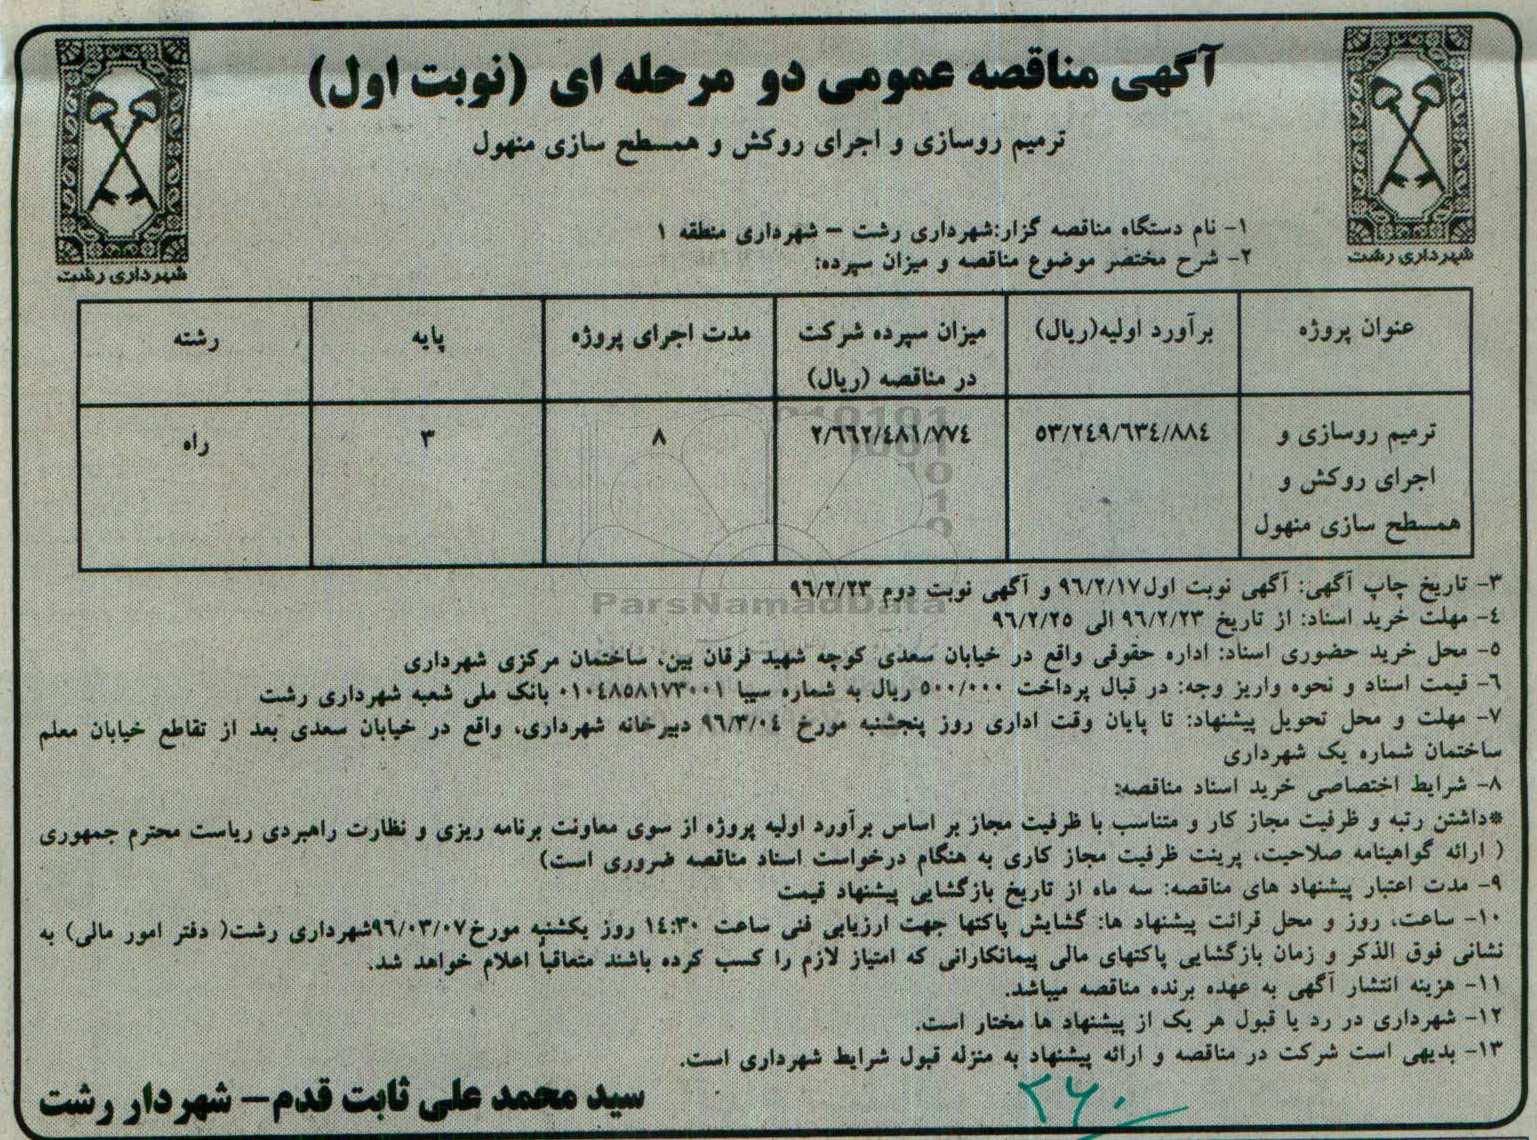 آگهی مناقصه عمومی دو مرحله ای (نوبت اول)
ترمیم روسازی و اجرای روکش و همسطح سازی منهول
شهرداری رشت
شهرداری رشت
۱- نام دستگاه مناقصه گزار:شهرداری رشت – شهرداری منطقه ۱
۲- شرح مختصر موضوع مناقصه و میزان سپرده:
عنوان پروژه
برآورد اولیه(ریال)
میزان سپرده شرکت
در مناقصه (ریال)
مدت اجرای پروژه
پایه
رشته
ترمیم روسازی و
اجرای روکش و
همسطح سازی منهول
۵۳/۲٤۹/٦۳٤/۸۸٤
۲/٦٦۲/٤۸۱/۷۷٤
۸
۳
راه
ParsNamadData
۳- تاریخ چاپ آگهی: آگهی نوبت اول۹٦/۲/۱۷ و آگهی نوبت دوم ۹٦/۲/۲۳
٤- مهلت خرید اسناد: از تاریخ ۹٦/۲/۲۳ الی ۹٦/۲/۲۵
۵- محل خرید حضوری اسناد: اداره حقوقی واقع در خیابان سعدی کوچه شهید فرقان بین، ساختمان مرکزی شهرداری
٦- قیمت اسناد و نحوه واریز وجه: در قبال پرداخت ۵۰۰/۰۰۰ ریال به شماره سیبا ۰۱۰٤۸۵۸۱۷۳۰۰۱ بانک ملی شعبه شهرداری رشت
۷- مهلت و محل تحویل پیشنهاد: تا پایان وقت اداری روز پنجشنبه مورخ ۹٦/۳/۰٤ دبیرخانه شهرداری، واقع در خیابان سعدی بعد از تقاطع خیابان معلم
ساختمان شماره یک شهرداری
۸- شرایط اختصاصی خرید اسناد مناقصه:
*داشتن رتبه و ظرفیت مجاز کار و متناسب با ظرفیت مجاز بر اساس برآورد اولیه پروژه از سوی معاونت برنامه ریزی و نظارت راهبردی ریاست محترم جمهوری
( ارائه گواهینامه صلاحیت، پرینت ظرفیت مجاز کاری به هنگام درخواست اسناد مناقصه ضروری است)
۹- مدت اعتبار پیشنهاد های مناقصه: سه ماه از تاریخ بازگشایی پیشنهاد قیمت
۱۰- ساعت، روز و محل قرائت پیشنهاد ها: گشایش پاکتها جهت ارزیابی فنی ساعت ۱٤:۳۰ روز یکشنبه مورخ۹٦/۰۳/۰۷شهرداری رشت( دفتر امور مالی) به
نشانی فوق الذکر و زمان بازگشایی پاکتهای مالی پیمانکارانی که امتیاز لازم را کسب کرده باشند متعاقباً اعلام خواهد شد.
۱۱- هزینه انتشار آگهی به عهده برنده مناقصه میباشد.
۱۲- شهرداری در رد یا قبول هر یک از پیشنهاد ها مختار است.
۱۳- بدیهی است شرکت در مناقصه و ارائه پیشنهاد به منزله قبول شرایط شهرداری است.
سید محمد علی ثابت قدم– شهردار رشت
۲٦۰